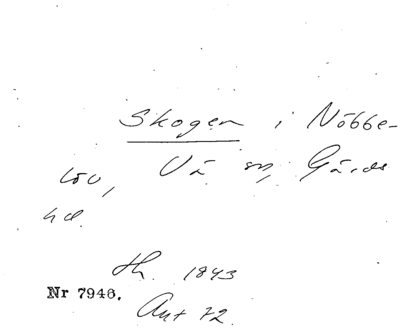 Skogen i Nöbbe-
löv, Vä sn, Gärds
hd.
Th. 1843
Nr 7946.
Ant 72.